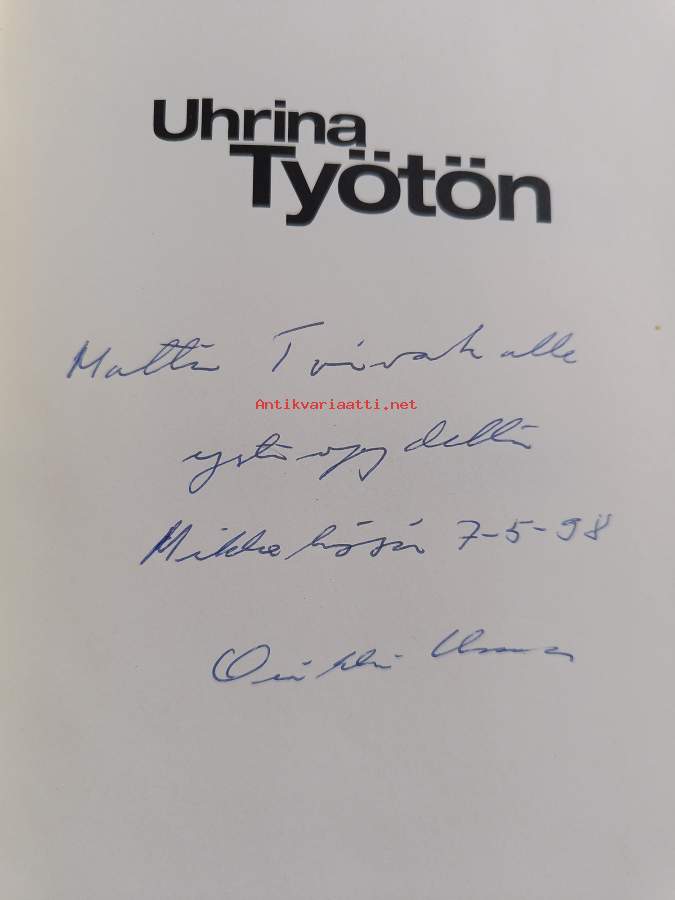 Uhrina
Työtön
Matti Toivakalle
Antikvariaatti.net
ystävyydellä
Mikkelissä 7-5-98